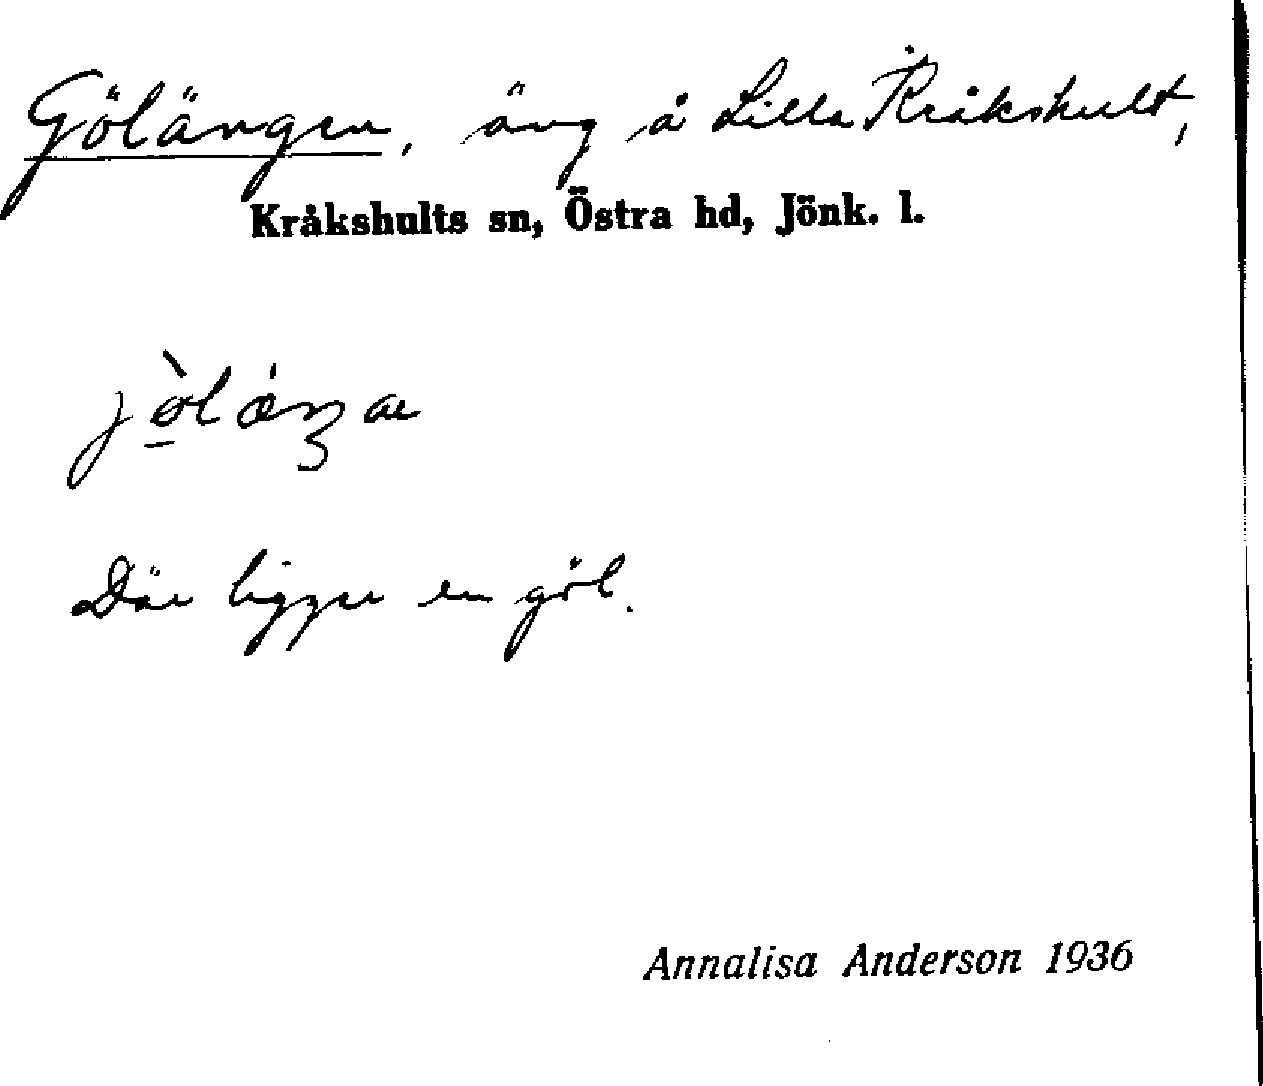 Gölängen, äng å Lilla Kråkshult,
Kråkshults sn, Östra hd, Jönk. l.
Där ligger en göl.
Annalisa Anderson 1936